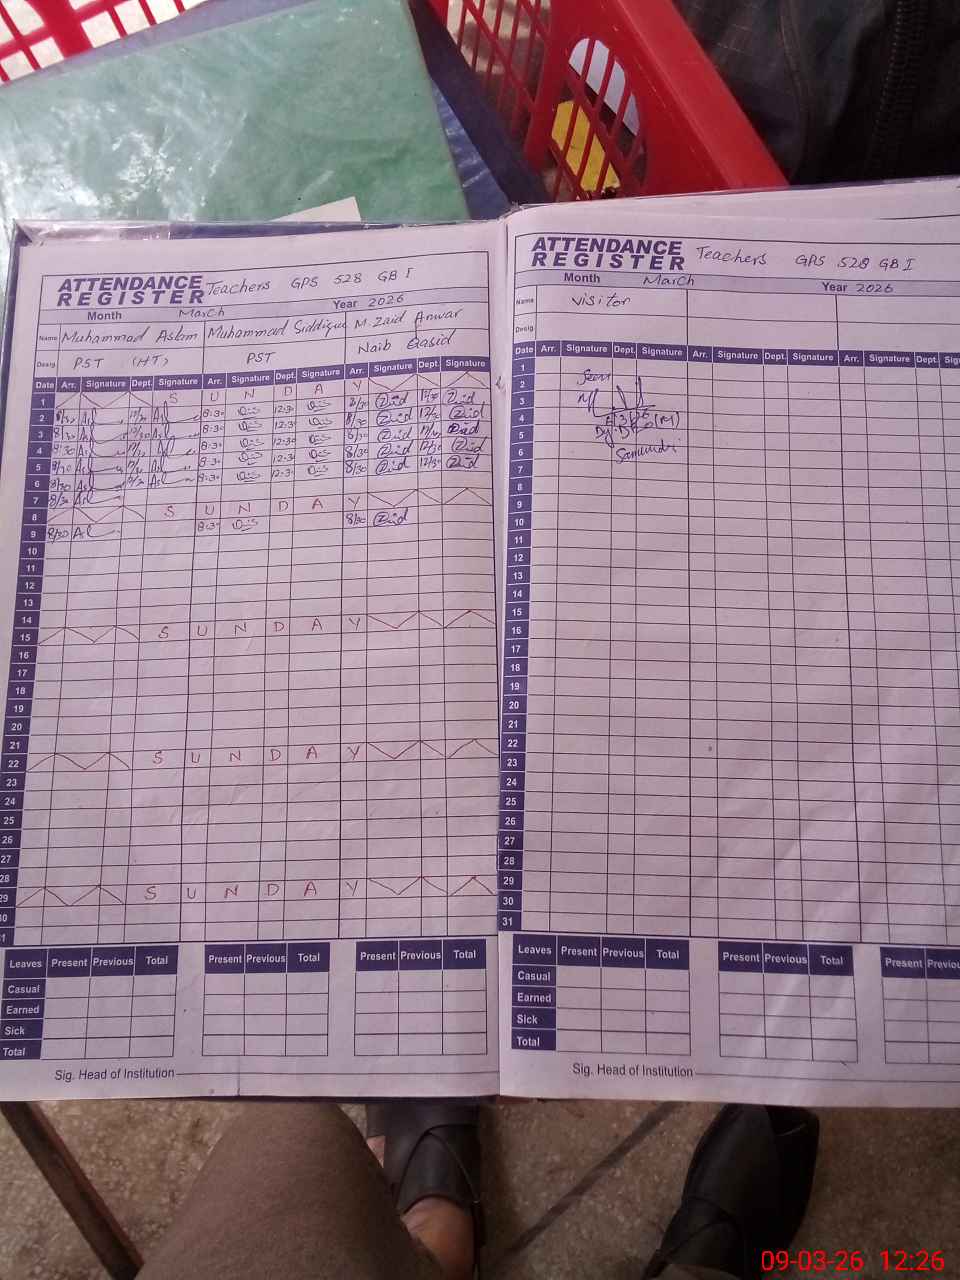 ATTENDANCE REGISTER Teachers GPS 528 GB I
Month March Year 2026
Name Muhammad Aslam Muhammad Siddique M. Zaid Anwar
Desig. PST (HT) PST Naib Qasid
Date Arr. Signature Dept. Signature Arr. Signature Dept. Signature Arr. Signature Dept. Signature
1 S U N D A Y
2 8/30 12/30 8:30 12:30 8/30 Zaid 12/30 Zaid
3 8/30 12/30 8:30 12:30 8/30 Zaid 12/30 Zaid
4 8/30 12/30 8:30 12:30 8/30 Zaid 12/30 Zaid
5 8/30 12/30 8:30 12:30 8/30 Zaid 12/30 Zaid
6 8/30 12/30 8:30 12:30 8/30 Zaid 12/30 Zaid
7 8/30
8 S U N D A Y
9 8/30 8:30 8/30 Zaid
10
11
12
13
14
15 S U N D A Y
16
17
18
19
20
21
22 S U N D A Y
23
24
25
26
27
28
29 S U N D A Y
30
31
Leaves Present Previous Total Present Previous Total Present Previous Total
Casual
Earned
Sick
Total
Sig. Head of Institution
ATTENDANCE REGISTER Teachers GPS 528 GB I
Month March Year 2026
Name Visitor
Desig.
Date Arr. Signature Dept. Signature Arr. Signature Dept. Signature Arr. Signature
1
2 Seen
3
4
5 Dy. DEO (M)
6 Samundri
7
8
9
10
11
12
13
14
15
16
17
18
19
20
21
22
23
24
25
26
27
28
29
30
31
Leaves Present Previous Total Present Previous Total Present
Casual
Earned
Sick
Total
Sig. Head of Institution
09-03-26 12:26